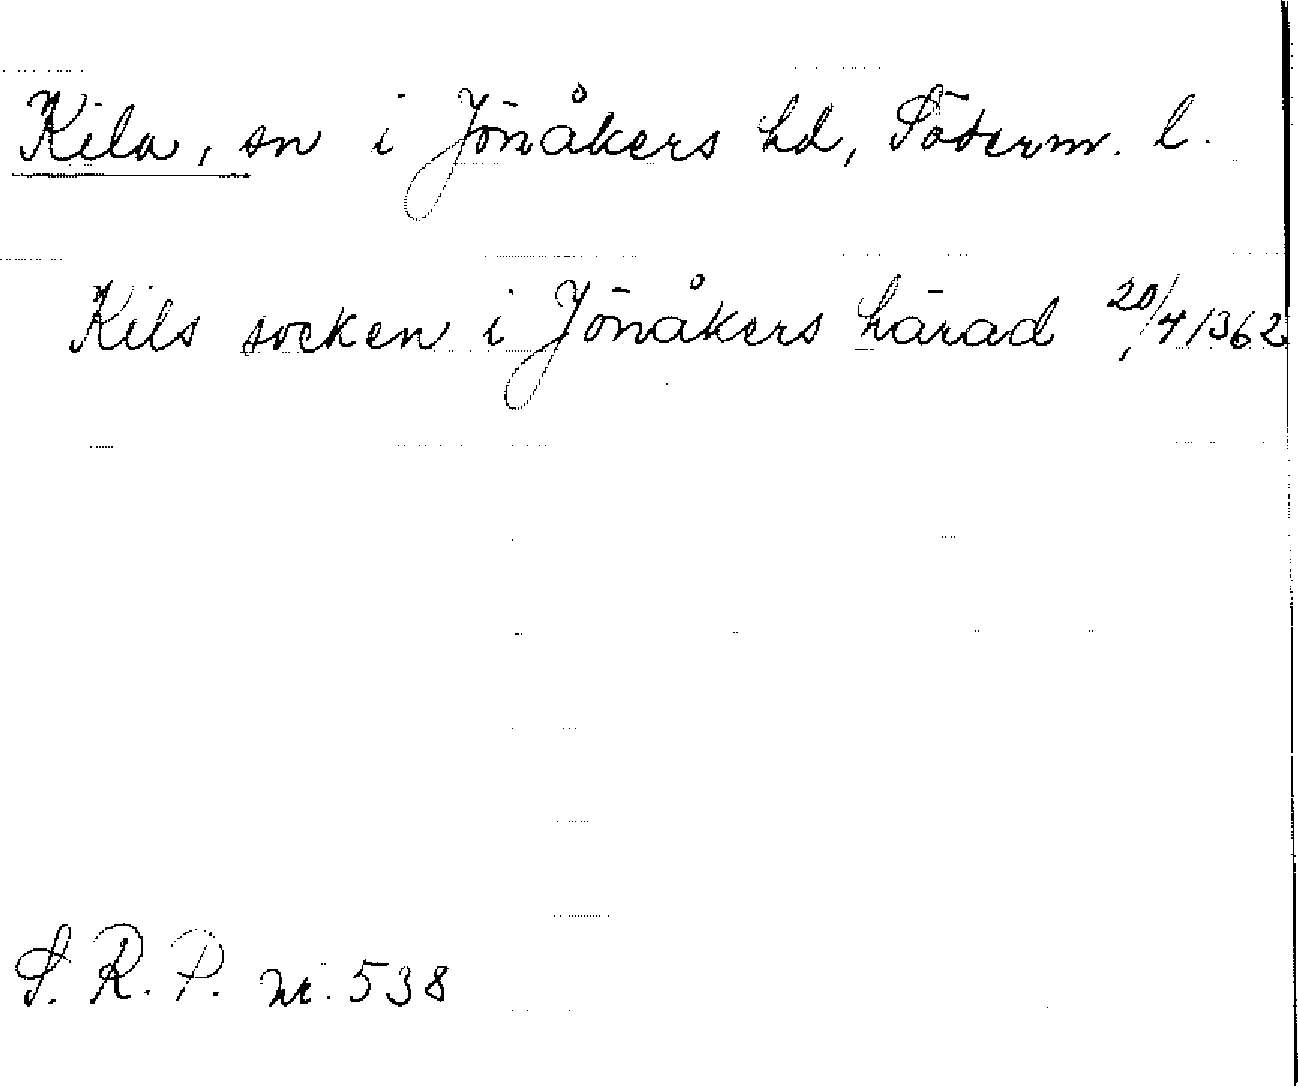 Kila, sn i Jönåkers hd, Söderm. l.
Kils socken i Jönåkers härad 20/4 1362
S. R. P. nr. 538